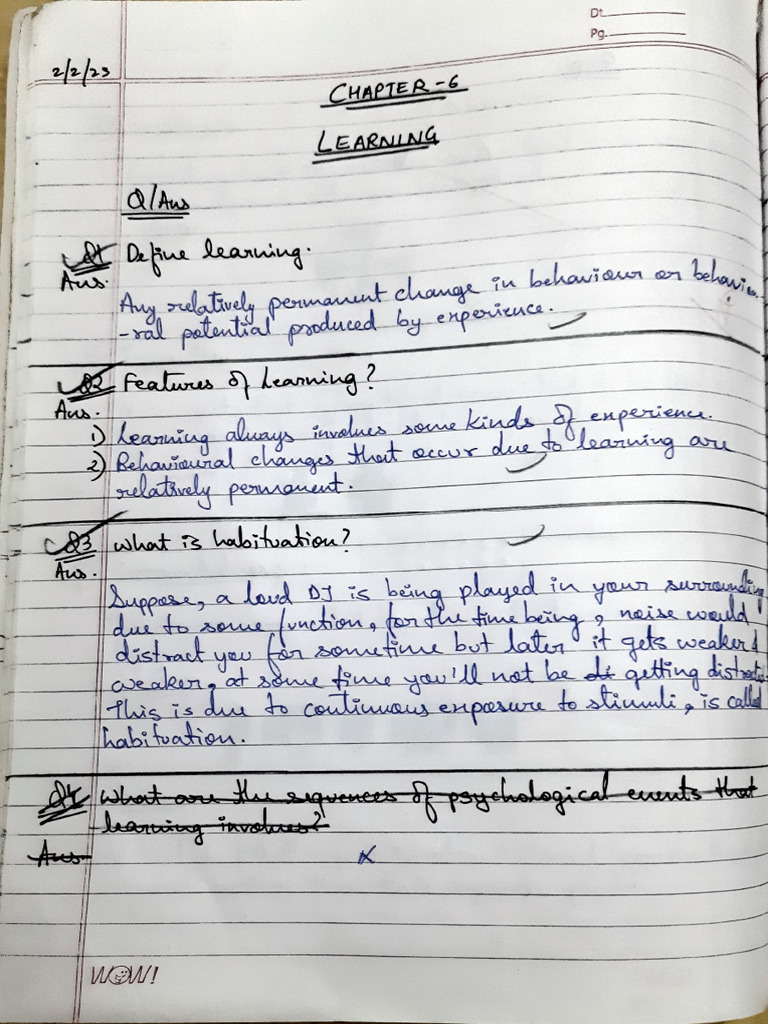 Dt.
Pg.
2/2/23
CHAPTER-6
LEARNING
Q/Ans
Q1 Define learning.
Ans.
Any relatively permanent change in behaviour or behaviou
-ral potential produced by experience.
Q2 Features of Learning?
Ans.
1) Learning always involves some kinds of experience.
2) Behavioural changes that occur due to learning are
relatively permanent.
Q3 What is habituation?
Ans.
Suppose, a loud DJ is being played in your surrounding
due to some function, for the time being, noise would
distract you for sometime but later it gets weaker &
weaker, at some time you'll not be getting distracted.
This is due to continuous exposure to stimuli, is called
habituation.
Q4 What are the sequences of psychological events that
learning involves?
Ans
x
WOW!